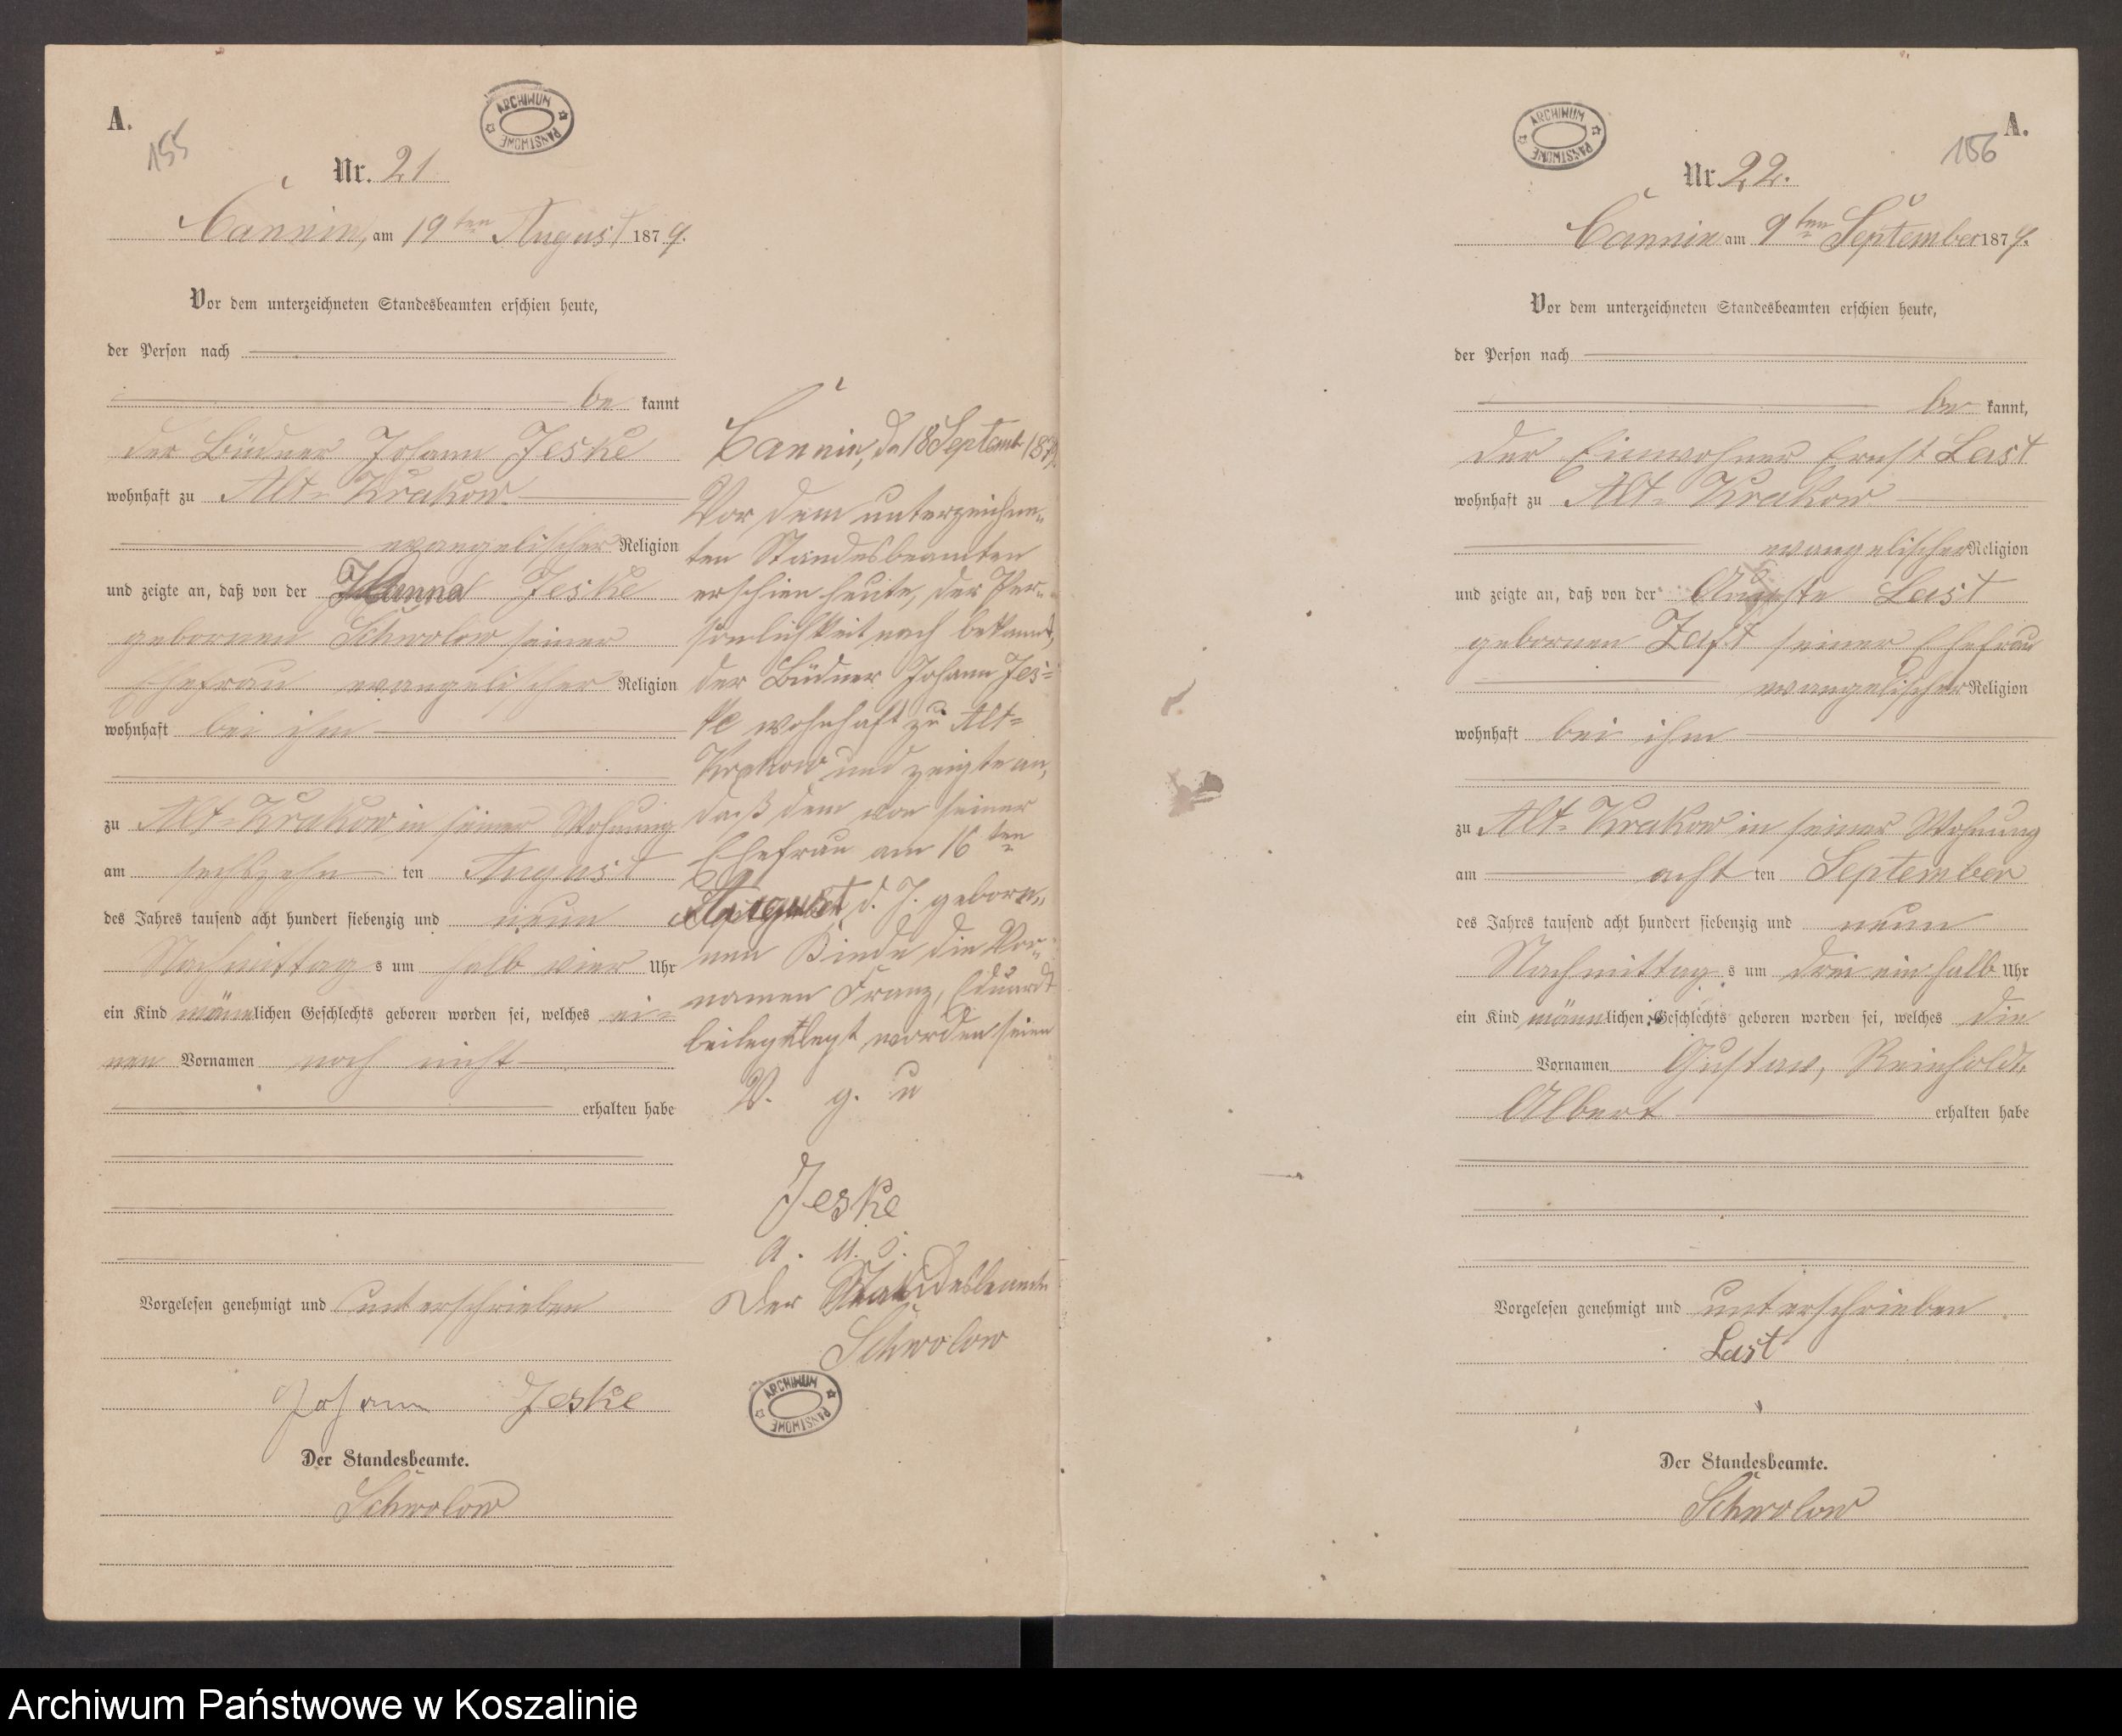 A.
155
ARCHIWUM PAŃSTWOWE
Nr. 21
Cannin, am 19ten August 1879.
Vor dem unterzeichneten Standesbeamten erschien heute,
der Person nach
be kannt
der Büdner Johann Jeske
wohnhaft zu Alt-Krakow
evangelischer Religion
und zeigte an, daß von der Jeske
gebornen Schwolow seiner
Ehefrau evangelischer Religion
wohnhaft bei ihm
zu Alt-Krakow in seiner Wohnung
am sechszehn ten August
des Jahres tausend acht hundert siebenzig und neun
Nachmittag s um halb vier Uhr
ein Kind männlichen Geschlechts geboren worden sei, welches ei-
nen Vornamen noch nicht
erhalten habe
Vorgelesen genehmigt und unterschrieben
Johann Jeske
Der Standesbeamte.
Schwolow
Cannin, d 18 Septemb 1879.
Vor dem unterzeichne-
ten Standesbeamten
erschien heute, der Per-
sönlichkeit nach bekannt,
der Büdner Johann Jes-
ke wohnhaft zu Alt-
Krakow und zeigte an,
daß dem von seiner
Ehefrau am 16ten
August d. J. gebore-
nen Kinde die Vor-
namen Franz, Eduardt
beilegtlegt worden seien
V. g. u
Jeske
a. u. s.
Der Standesbeamte
Schwolow
ARCHIWUM PAŃSTWOWE
A.
156
ARCHIWUM PAŃSTWOWE
Nr. 22.
Cannin am 9ten September 1879.
Vor dem unterzeichneten Standesbeamten erschien heute,
der Person nach
be kannt,
der Einwohner Ernst Last
wohnhaft zu Alt-Krakow
evangelischer Religion
und zeigte an, daß von der Auguste Last
gebornen seiner Ehefrau
evangelischer Religion
wohnhaft bei ihm
zu Alt-Krakow in seiner Wohnung
am acht ten September
des Jahres tausend acht hundert siebenzig und neun
Nachmittag s um drei ein halb Uhr
ein Kind männlichen Geschlechts geboren worden sei, welches die
Vornamen Gustav, Reinholdt,
Albert erhalten habe
Vorgelesen genehmigt und unterschrieben
Last
Der Standesbeamte.
Schwolow
Archiwum Państwowe w Koszalinie